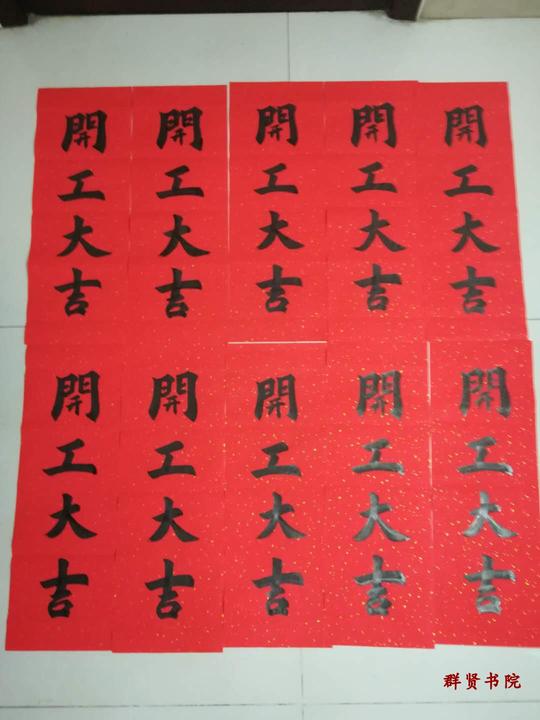 開工大吉
開工大吉
開工大吉
開工大吉
開工大吉
開工大吉
開工大吉
開工大吉
開工大吉
開工大吉
群贤书院